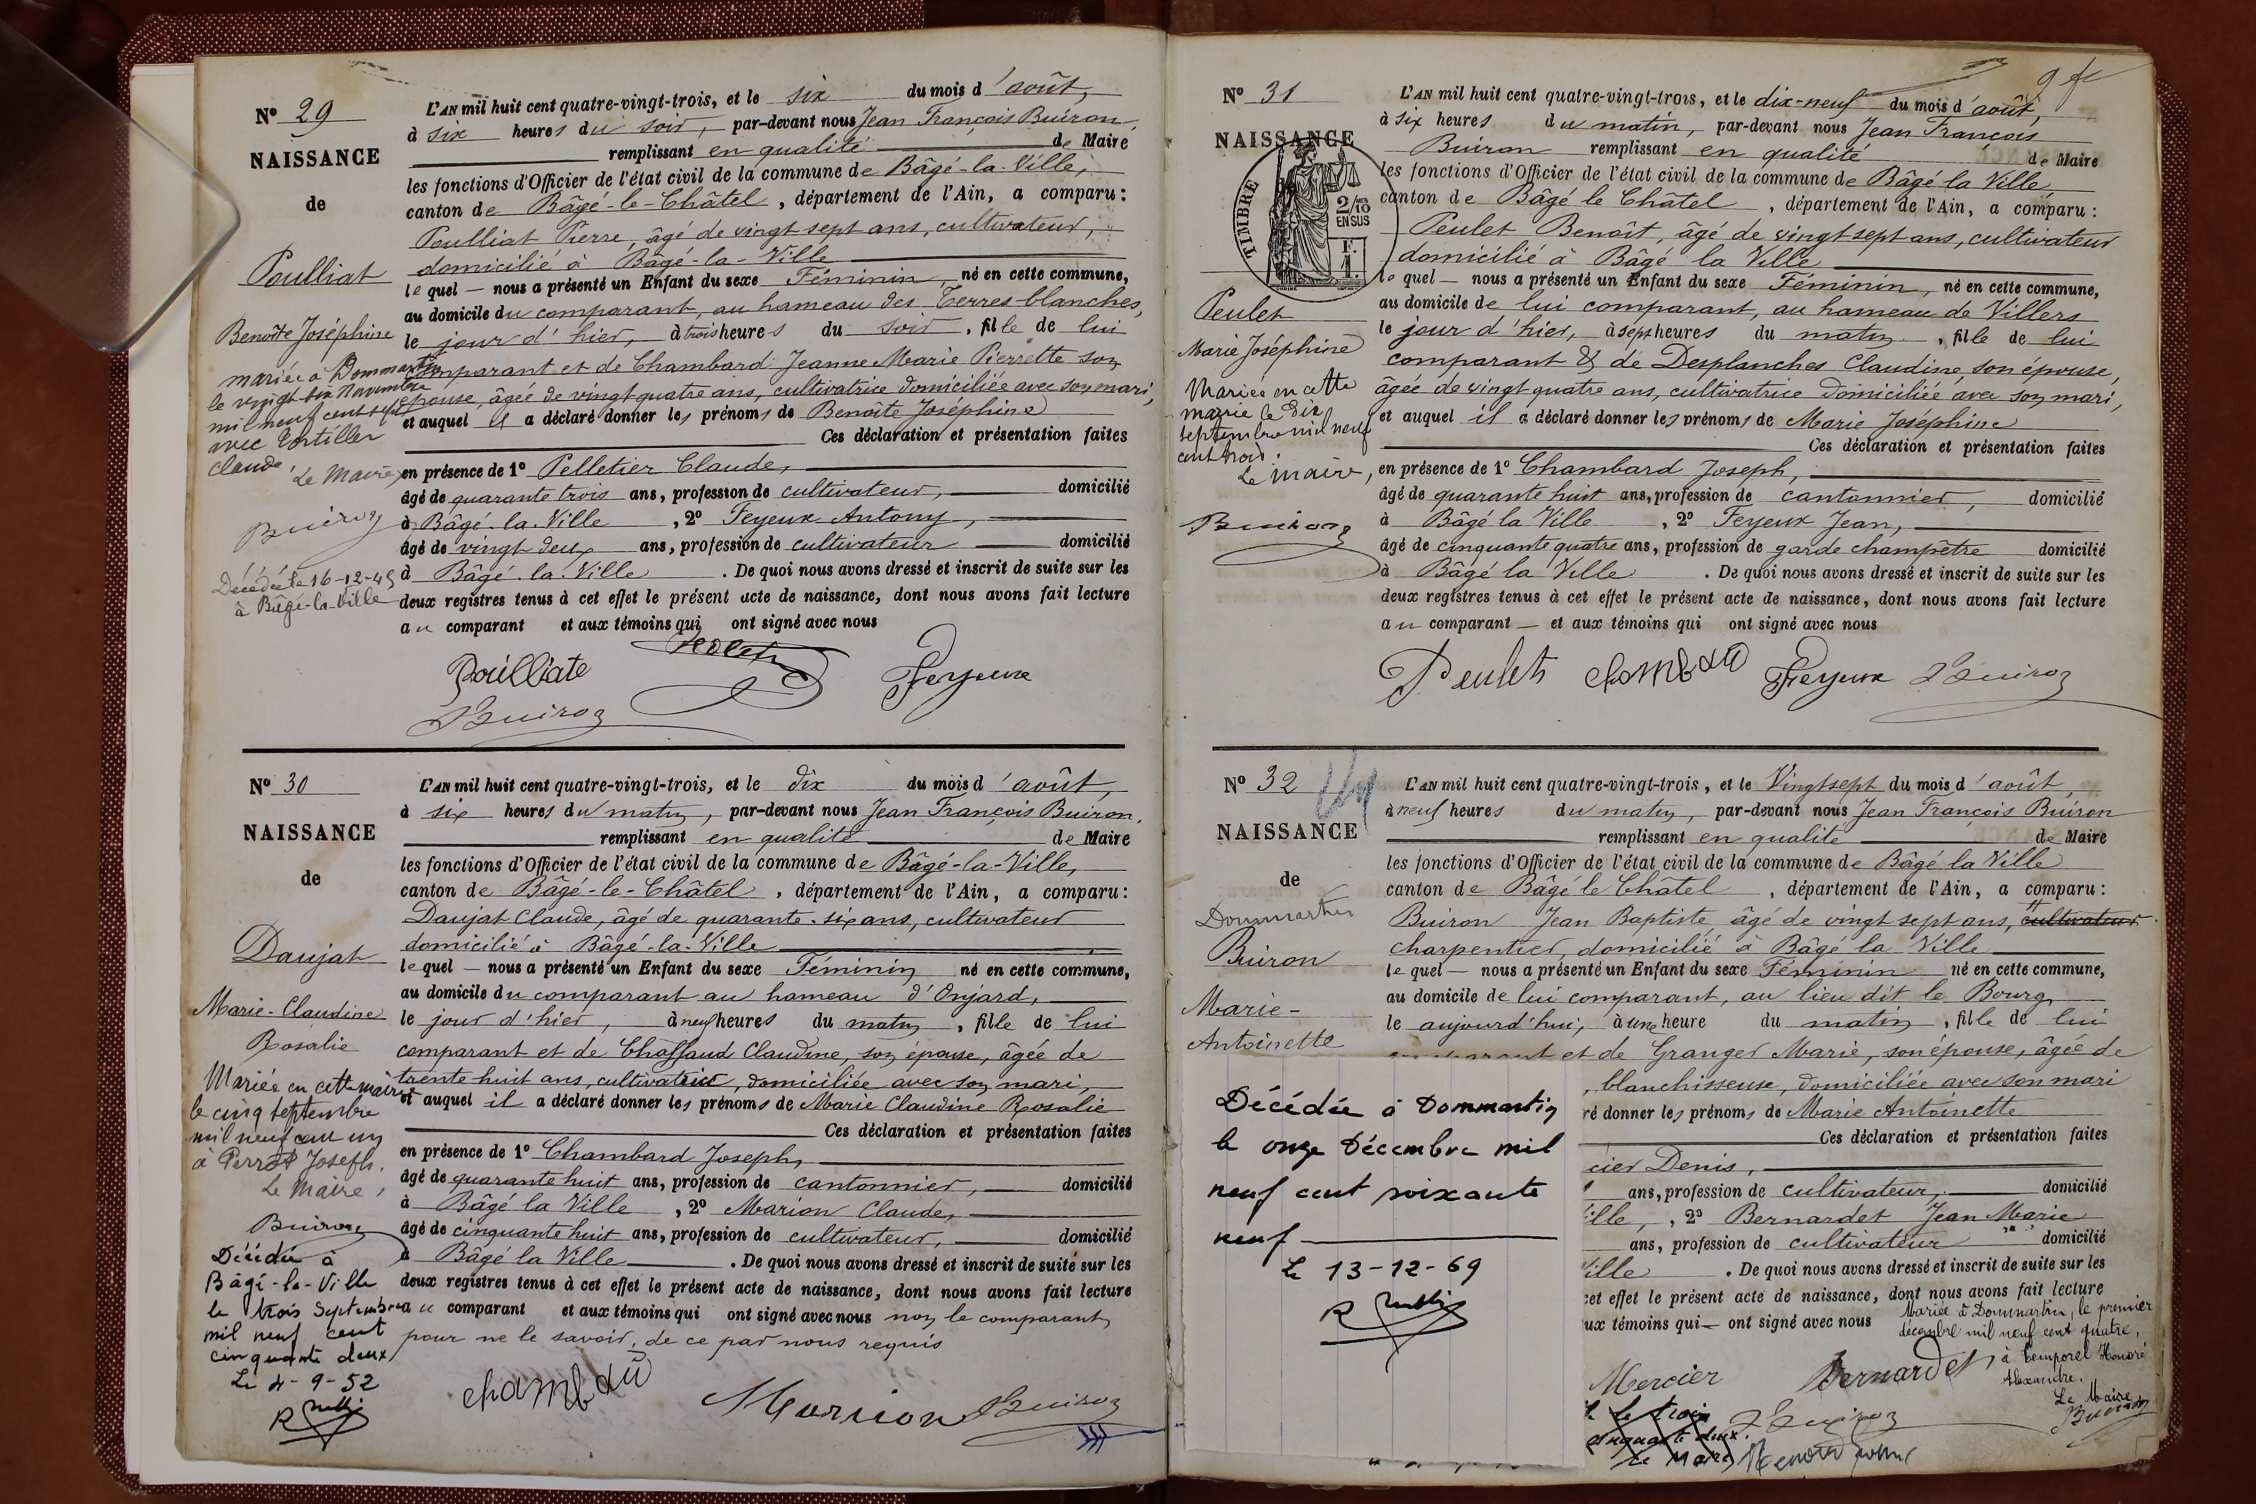 N° 29
NAISSANCE
de
Poulliat
Benoîte Joséphine
mariée à Dommartin
le vingt-six novembre
mil neuf cent sept
avec Tortiller
Claude.
Le Maire,
Buiron
Décédée le 16-12-45
à Bâgé-la-Ville
L'AN mil huit cent quatre-vingt-trois, et le six du mois d'août,
à six heures du soir, par-devant nous Jean François Buiron,
remplissant en qualité de Maire
les fonctions d'Officier de l'état civil de la commune de Bâgé-la-Ville,
canton de Bâgé-le-Châtel, département de l'Ain, a comparu :
Poulliat Pierre, âgé de vingt sept ans, cultivateur,
domicilié à Bâgé-la-Ville
lequel — nous a présenté un Enfant du sexe Féminin, né en cette commune,
au domicile du comparant, au hameau des Terres-blanches,
le jour d'hier, à trois heures du soir, fille de lui
comparant et de Chambard Jeanne Marie Pierrette son
épouse, âgée de vingt quatre ans, cultivatrice domiciliée avec son mari,
et auquel il a déclaré donner les prénoms de Benoîte Joséphine
Ces déclaration et présentation faites
en présence de 1° Pelletier Claude,
âgé de quarante trois ans, profession de cultivateur, domicilié
à Bâgé-la-Ville, 2° Feyeux Antony,
âgé de vingt deux ans, profession de cultivateur domicilié
à Bâgé-la-Ville. De quoi nous avons dressé et inscrit de suite sur les
deux registres tenus à cet effet le présent acte de naissance, dont nous avons fait lecture
au comparant et aux témoins qui ont signé avec nous
Poulliate Feyeux
Buiron
N° 30
NAISSANCE
de
Daujat
Marie-Claudine
Rosalie
Mariée en cette mairie
le cinq septembre
mil neuf cent un
à Perrot Joseph.
Le Maire,
Buiron
Décédée à
Bâgé-la-Ville
le trois Septembre
mil neuf cent
cinquante deux
Le 4-9-52
L'AN mil huit cent quatre-vingt-trois, et le dix du mois d'août,
à six heures du matin, par-devant nous Jean François Buiron,
remplissant en qualité de Maire
les fonctions d'Officier de l'état civil de la commune de Bâgé-la-Ville,
canton de Bâgé-le-Châtel, département de l'Ain, a comparu :
Daujat Claude, âgé de quarante-six ans, cultivateur
domicilié à Bâgé-la-Ville
lequel — nous a présenté un Enfant du sexe Féminin né en cette commune,
au domicile du comparant au hameau d'Onjard,
le jour d'hier, à neuf heures du matin, fille de lui
comparant et de Chaffaud Claudine, son épouse, âgée de
trente huit ans, cultivatrice, domiciliée avec son mari,
et auquel il a déclaré donner les prénoms de Marie Claudine Rosalie
Ces déclaration et présentation faites
en présence de 1° Chambard Joseph,
âgé de quarante huit ans, profession de cantonnier, domicilié
à Bâgé la Ville, 2° Marion Claude,
âgé de cinquante huit ans, profession de cultivateur, domicilié
à Bâgé la Ville. De quoi nous avons dressé et inscrit de suite sur les
deux registres tenus à cet effet le présent acte de naissance, dont nous avons fait lecture
au comparant et aux témoins qui ont signé avec nous non le comparant
pour ne le savoir, de ce par nous requis
Marion Buiron
9 fc
N° 31
NAISSANCE
TIMBRE
2/10 EN SUS
F. 1.
Peulet
Marie Joséphine
Mariée en cette
mairie le dix
septembre mil neuf
cent trois.
Le maire,
Buiron
L'AN mil huit cent quatre-vingt-trois, et le dix-neuf du mois d'août,
à six heures du matin, par-devant nous Jean François
Buiron remplissant en qualité de Maire
les fonctions d'Officier de l'état civil de la commune de Bâgé la Ville,
canton de Bâgé le Châtel, département de l'Ain, a comparu :
Peulet Benoît, âgé de vingt sept ans, cultivateur
domicilié à Bâgé la Ville
lequel — nous a présenté un Enfant du sexe Féminin, né en cette commune,
au domicile de lui comparant, au hameau de Villers
le jour d'hier, à sept heures du matin, fille de lui
comparant & de Desplanches Claudine, son épouse,
âgée de vingt quatre ans, cultivatrice domiciliée avec son mari,
et auquel il a déclaré donner les prénoms de Marie Joséphine
Ces déclaration et présentation faites
en présence de 1° Chambard Joseph,
âgé de quarante huit ans, profession de cantonnier, domicilié
à Bâgé la Ville, 2° Feyeux Jean,
âgé de cinquante quatre ans, profession de garde champêtre domicilié
à Bâgé la Ville. De quoi nous avons dressé et inscrit de suite sur les
deux registres tenus à cet effet le présent acte de naissance, dont nous avons fait lecture
au comparant — et aux témoins qui ont signé avec nous
Peulet Feyeux Buiron
N° 32
NAISSANCE
de
Dommartin
Buiron
Marie-
Antoinette
L'AN mil huit cent quatre-vingt-trois, et le Vingt sept du mois d'août,
à neuf heures du matin, par-devant nous Jean François Buiron
remplissant en qualité de Maire
les fonctions d'Officier de l'état civil de la commune de Bâgé la Ville
canton de Bâgé le Châtel, département de l'Ain, a comparu :
Buiron Jean Baptiste, âgé de vingt sept ans, cultivateur
charpentier, domicilié à Bâgé la Ville
lequel — nous a présenté un Enfant du sexe Féminin né en cette commune,
au domicile de lui comparant, au lieu dit le Bourg
le aujourd'hui, à une heure du matin, fille de lui
comparant et de Granger Marie, son épouse, âgée de
, blanchisseuse, domiciliée avec son mari
ré donner les prénoms de Marie Antoinette
Ces déclaration et présentation faites
cier Denis,
ans, profession de cultivateur, domicilié
ille, , 2° Bernardet Jean Marie
ans, profession de cultivateur domicilié
ille. De quoi nous avons dressé et inscrit de suite sur les
cet effet le présent acte de naissance, dont nous avons fait lecture
ux témoins qui — ont signé avec nous
Mariée à Dommartin, le premier
décembre mil neuf cent quatre,
à Temporel Honoré
Alexandre.
Le Maire
Buiron
Mercier Bernardet
Buiron
le trois
cinquante deux.
Le Maire
Décédée à Dommartin
le onze Décembre mil
neuf cent soixante
neuf
Le 13-12-69